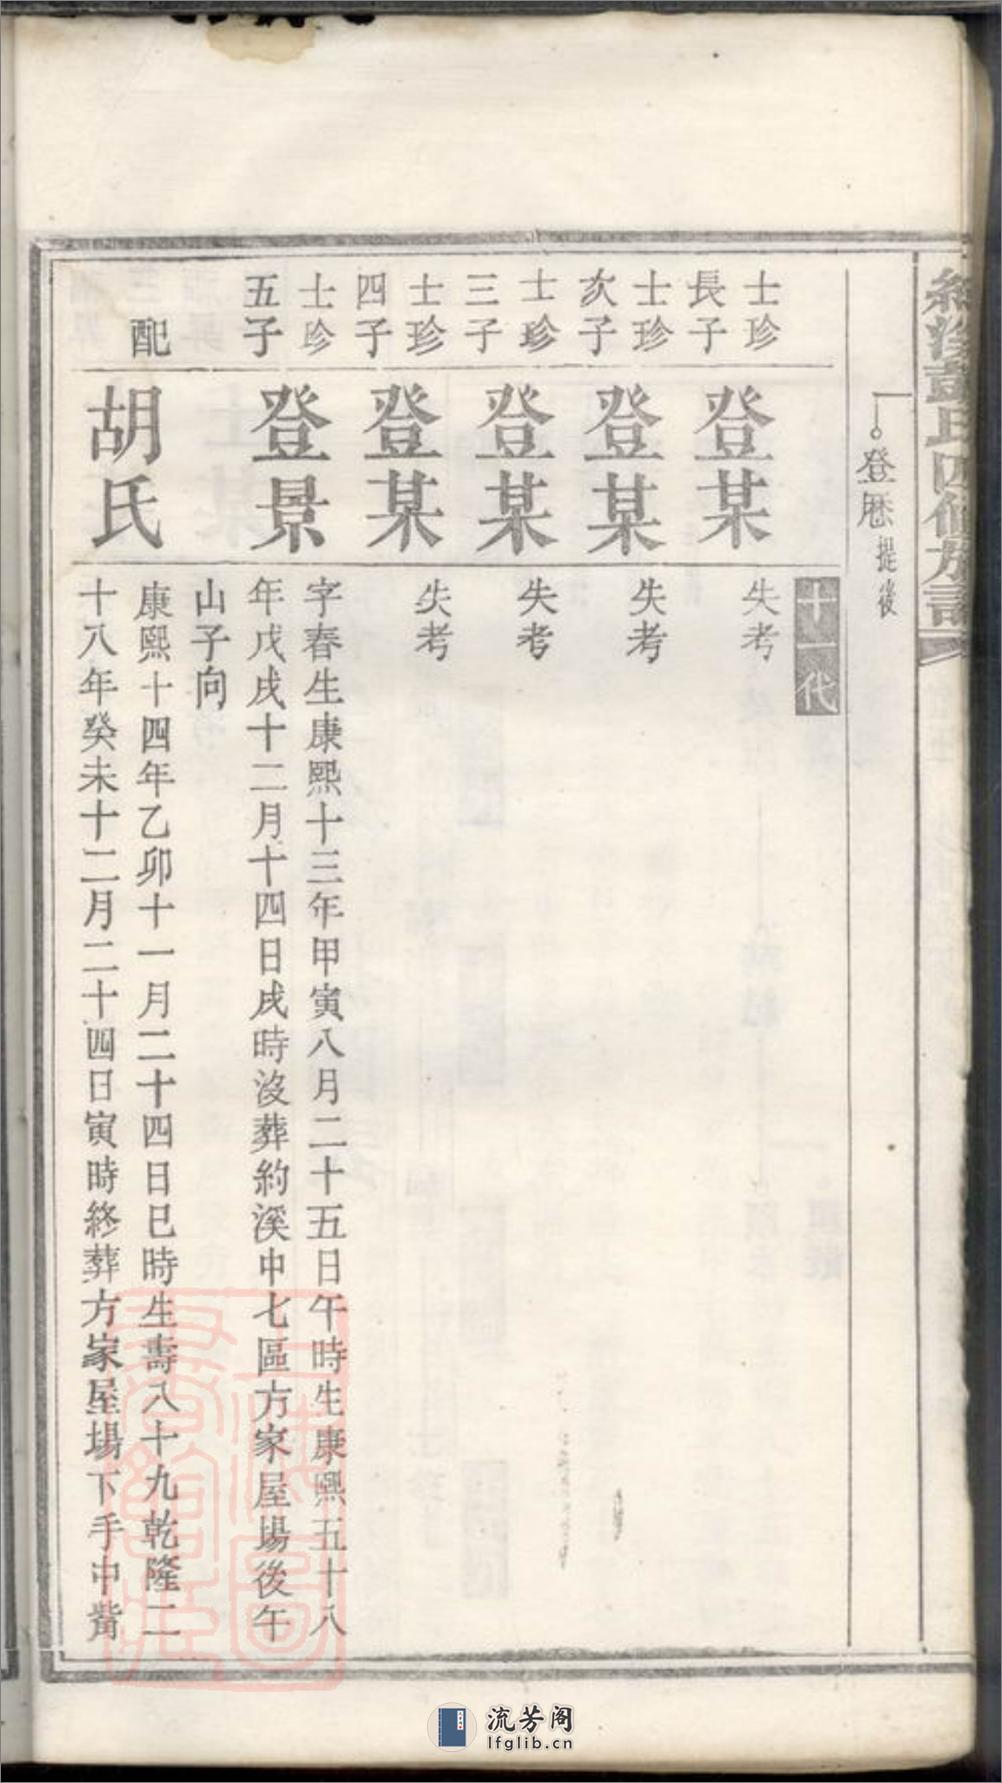 彭氏四修族譜
登厯提後
十一代
士珍長子
登某
失考
士珍次子
登某
失考
士珍三子
登某
失考
士珍四子
登某
失考
士珍五子
登景
字春生康熙十三年甲寅八月二十五日午時生康熙五十八
年戊戌十二月十四日戌時沒葬約溪中七區方家屋場後午
山子向
配
胡氏
康熙十四年乙卯十一月二十四日巳時生壽八十九乾隆二
十八年癸未十二月二十四日寅時終葬方家屋場下手中觜
流芳阁
lfglib.cn